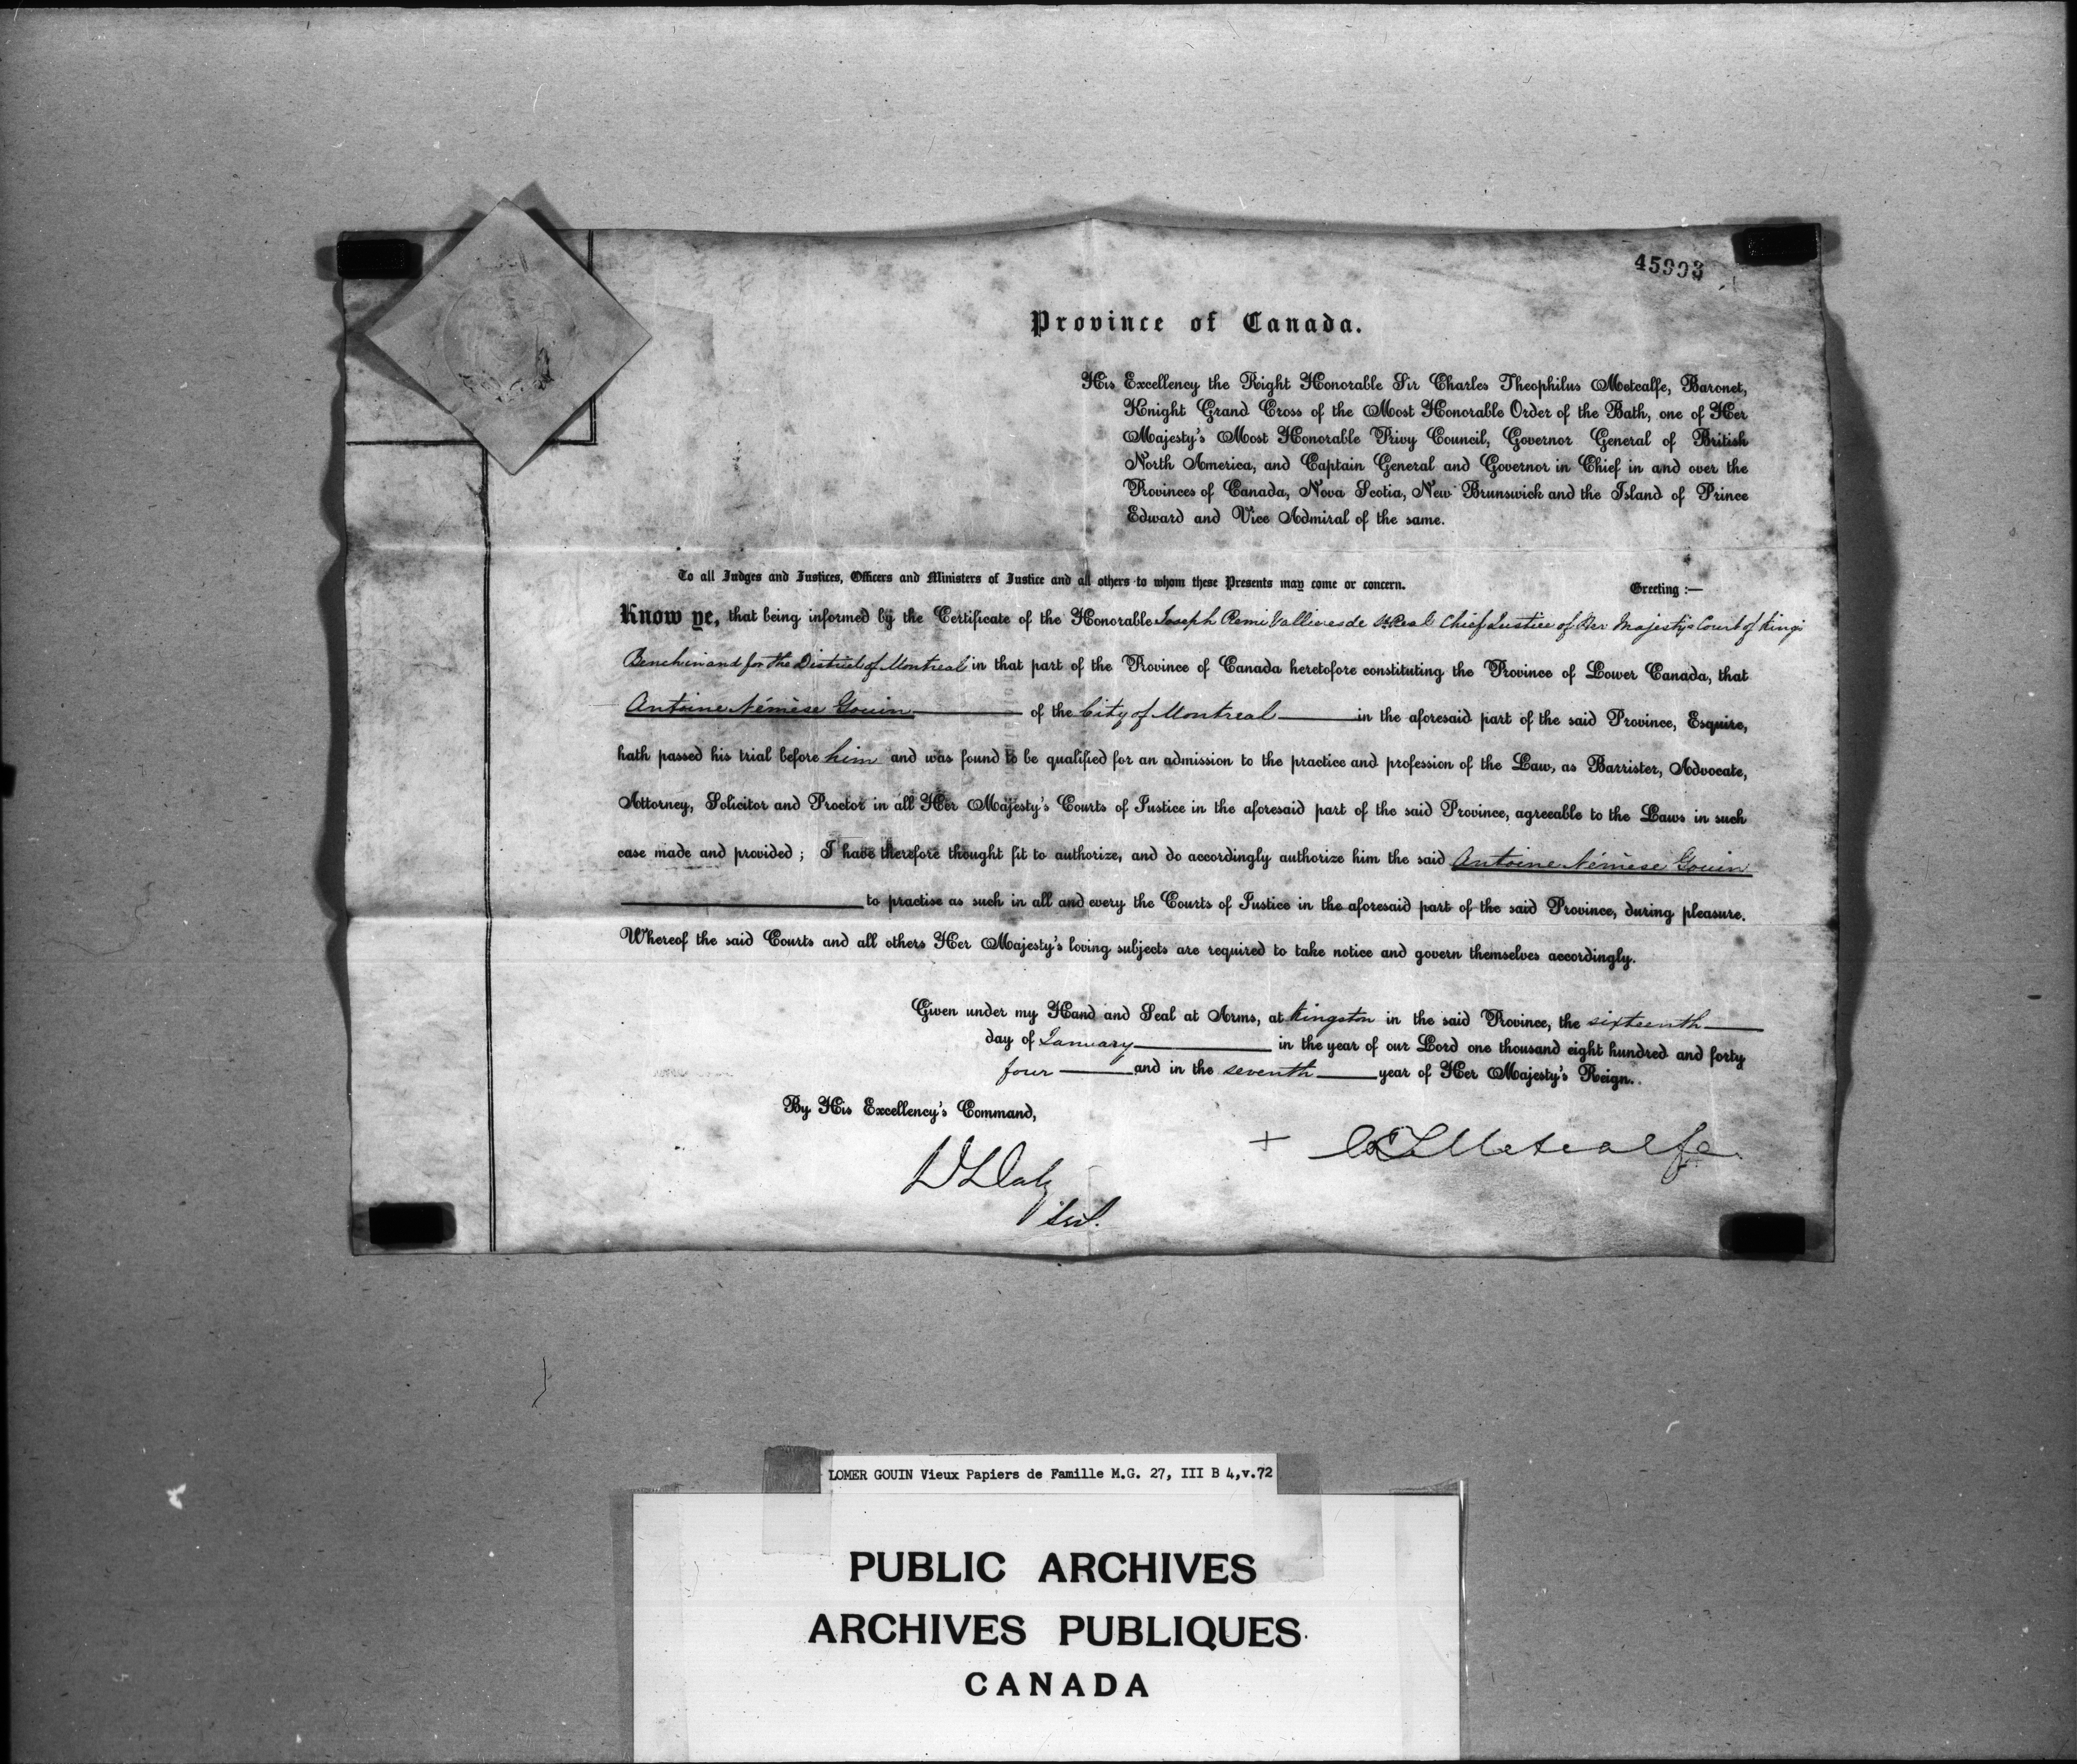 45993
Province of Canada.
His Excellency the Right Honorable Sir Charles Theophilus Metcalfe, Baronet,
Knight Grand Cross of the Most Honorable Order of the Bath, one of Her
Majesty's Most Honorable Privy Council, Governor General of British
North America, and Captain General and Governor in Chief in and over the
Provinces of Canada, Nova Scotia, New Brunswick and the Island of Prince
Edward and Vice Admiral of the same.
To all Judges and Justices, Officers and Ministers of Justice and all others to whom these Presents may come or concern. Greeting :—
Know ye, that being informed by the Certificate of the Honorable Joseph Remi Vallieres de St. Real Chief Justice of Her Majesty's Court of King's
Bench in and for the District of Montreal in that part of the Province of Canada heretofore constituting the Province of Lower Canada, that
Antoine Némèse Gouin of the City of Montreal in the aforesaid part of the said Province, Esquire,
hath passed his trial before him and was found to be qualified for an admission to the practice and profession of the Law, as Barrister, Advocate,
Attorney, Solicitor and Proctor in all Her Majesty's Courts of Justice in the aforesaid part of the said Province, agreeable to the Laws in such
case made and provided ; I have therefore thought fit to authorize, and do accordingly authorize him the said Antoine Némèse Gouin
to practise as such in all and every the Courts of Justice in the aforesaid part of the said Province, during pleasure.
Whereof the said Courts and all others Her Majesty's loving subjects are required to take notice and govern themselves accordingly.
Given under my Hand and Seal at Arms, at Kingston in the said Province, the sixteenth
day of January in the year of our Lord one thousand eight hundred and forty
four and in the seventh year of Her Majesty's Reign.
By His Excellency's Command,
+ C T Metcalfe
D Daly
Sec.
LOMER GOUIN Vieux Papiers de Famille M.G. 27, III B 4,v.72
PUBLIC ARCHIVES
ARCHIVES PUBLIQUES
CANADA